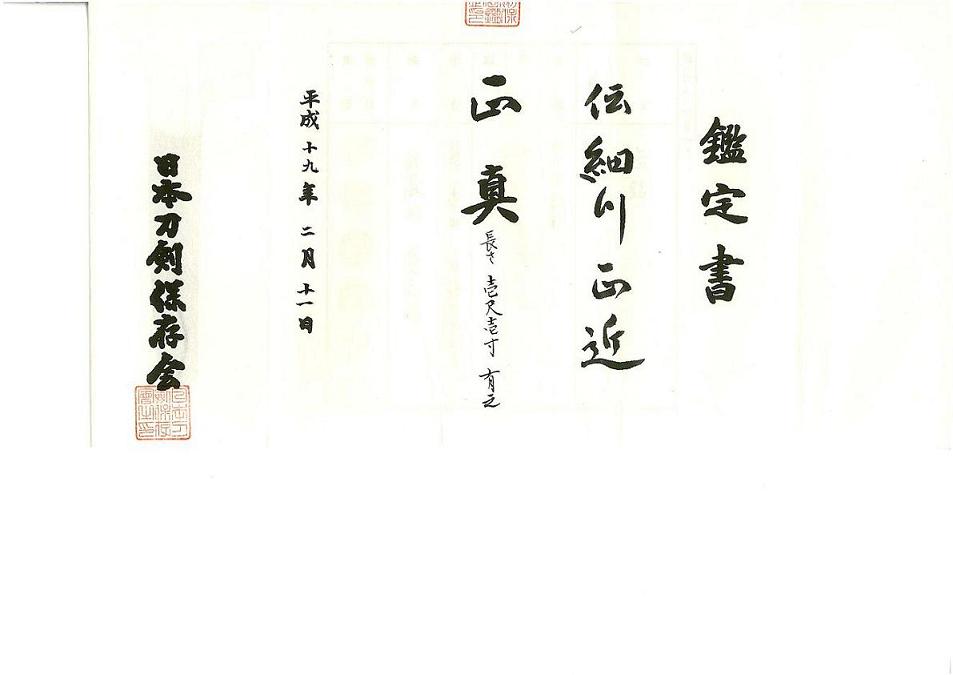 鑑定書
伝細川正近
正真 長さ壱尺壱寸有之
平成十九年二月十一日
日本刀剣保存会